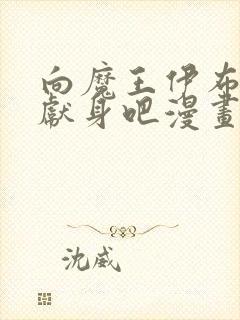 向魔王伊布
獻身吧漫畫
沈威